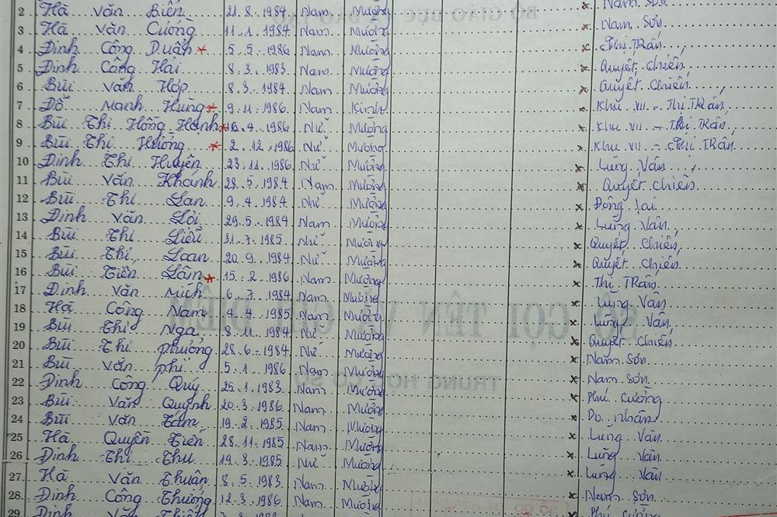 2 Hà Văn Biên 21.8.1984 Nam Mường x Nam Sơn
3 Hà Văn Cường 11.1.1984 Nam Mường x Nam Sơn
4 Đinh Công Duẩn * 5.5.1986 Nam Mường x Thị Trấn
5 Đinh Công Hải 8.3.1983 Nam Mường x Quyết Chiến
6 Bùi Văn Hợp 8.3.1984 Nam Mường x Quyết Chiến
7 Đỗ Mạnh Hùng * 9.11.1986 Nam Kinh x Khu VII - Thị Trấn
8 Bùi Thị Hồng Hạnh * 16.4.1986 Nữ Mường x Khu VII - Thị Trấn
9 Bùi Thị Hường * 2.12.1986 Nữ Mường x Khu VII - Thị Trấn
10 Đinh Thị Huyện 23.11.1986 Nữ Mường x Lũng Vân
11 Bùi Văn Khánh 28.5.1984 Nam Mường x Quyết Chiến
12 Bùi Thị Lan 9.4.1984 Nữ Mường x Đông Lai
13 Đinh Văn Lợi 29.5.1984 Nam Mường x Lũng Vân
14 Bùi Thị Liễu 31.7.1985 Nữ Mường x Quyết Chiến
15 Bùi Thị Loan 20.9.1984 Nữ Mường x Quyết Chiến
16 Bùi Tiến Lâm * 15.2.1986 Nam Mường x Thị Trấn
17 Đinh Văn Mích 6.7.1984 Nam Mường x Lũng Vân
18 Hà Công Nam 4.4.1985 Nam Mường x Lũng Vân
19 Bùi Thị Nga 8.11.1984 Nữ Mường x Quyết Chiến
20 Bùi Thị Phương 28.6.1984 Nữ Mường x Nam Sơn
21 Bùi Văn Phi 5.1.1986 Nam Mường x Nam Sơn
22 Đinh Công Quý 25.1.1983 Nam Mường x Phú Cường
23 Bùi Văn Quỳnh 20.3.1986 Nam Mường x Do Nhân
24 Bùi Văn Tâm 19.2.1985 Nam Mường x Lũng Vân
25 Hà Quyền Tiên 28.11.1985 Nam Mường x Lũng Vân
26 Đinh Thị Thu 19.3.1985 Nữ Mường x Lũng Vân
27 Hà Văn Thuận 8.5.1983 Nam Mường x Nam Sơn
28 Đinh Công Thương 12.3.1986 Nam Mường x Phú Cường
29 Đinh Văn